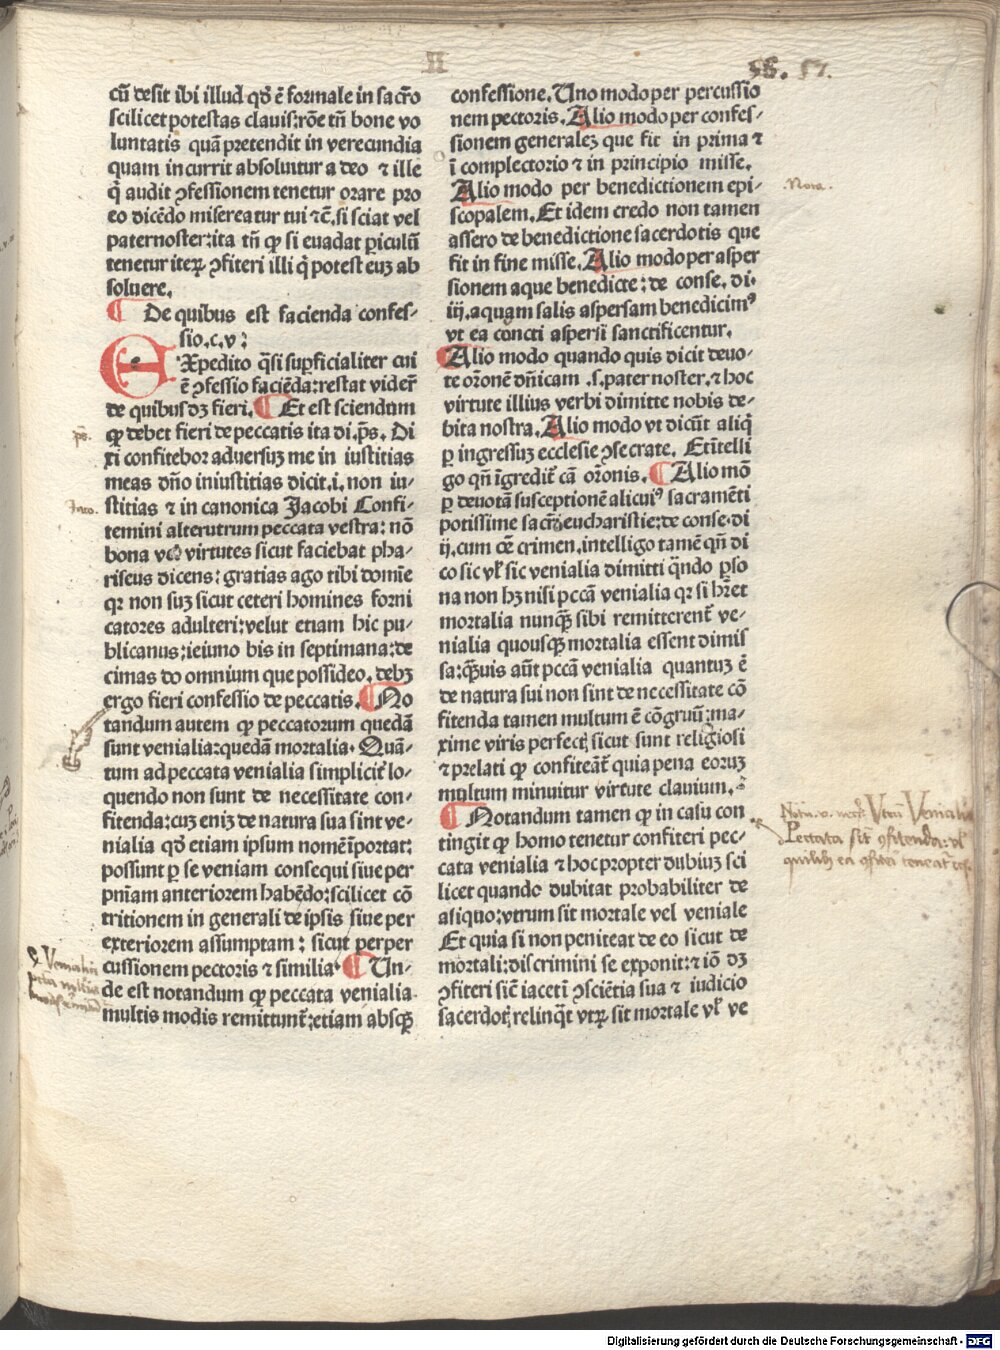 II
56. 57.
cū desit ibi illud qď ē formale in sacr̄o
scilicet potestas clauis: rōe tñ bone vo
luntatis quā pretendit in verecundia
quam incurrit absoluitur a deo ⁊ ille
q̇ audit ꝯfessionem tenetur orare pro
eo dicēdo misereatur tui ⁊c̄. si sciat vel
paternoster: ita tñ ꝙ si euadat ꝑiculū
tenetur iteꝝ ꝯfiteri illi q̇ potest euꝫ ab
soluere.
¶ De quibus est facienda confes-
sio. c. v:
EXpedito q̄si suꝑficialiter cui
ē ꝯfessio faciēda: restat vider̄
de quibus dꝫ fieri. ¶ Et est sciendum
ꝙ debet fieri de peccatis ita di. p̄s. Di
xi confitebor aduersuꝫ me in iustitias
meas dño iniustitias dicit. i. non iu-
stitias ⁊ in canonica Jacobi Confi-
temini alterutrum peccata vestra: nō
bona vel virtutes sicut faciebat pha-
riseus dicens: gratias ago tibi domīe
qꝛ non suꝫ sicut ceteri homines forni
catores adulteri: velut etiam hic pu-
blicanus: ieiuno bis in septimana: de
cimas do omnium que possideo. debꝫ
ergo fieri confessio de peccatis. ¶ No
tandum autem ꝙ peccatorum quedā
sunt venialia: quedā mortalia. Quā-
tum ad peccata venialia simplicit̄ lo-
quendo non sunt de necessitate con-
fitenda: cuꝫ eniꝫ de natura sua sint ve-
nialia qď etiam ipsum nomē īportat:
possunt ꝑ se veniam consequi siue per
pn̄iam anteriorem habēdo: scilicet cō
tritionem in generali de ipsis siue per
exteriorem assumptam: sicut per per
cussionem pectoris ⁊ similia. ¶ Un-
de est notandum ꝙ peccata venialia
multis modis remittunt̄: etiam absqꝫ
confessione. Uno modo per percussio
nem pectoris. Alio modo per confes-
sionem generaleꝫ que fit in prima ⁊
ī complectorio ⁊ in principio misse.
Alio modo per benedictionem epi-
scopalem. Et idem credo non tamen
assero de benedictione sacerdotis que
fit in fine misse. Alio modo per asper
sionem aque benedicte: de conse. di.
iij. aquam salis aspersam benedicimꝰ
vt ea cuncti aspersi sanctificentur.
Alio modo quando quis dicit deuo-
te or̄onē dñicam .s. pater noster. ⁊ hoc
virtute illius verbi dimitte nobis de-
bita nostra. Alio modo vt dicūt aliq̇
ꝑ ingressuꝫ ecclesie ꝯsecrate. Et ītelli
go qñ īgredit̄ cā or̄onis. ¶ Alio mō
ꝑ deuotā susceptionē alicuiꝰ sacramēti
potissime sacr̄i eucharistie: de conse. di
ij. cum oē crimen. intelligo tamē qñ di
co sic vl̕ sic venialia dimitti qñdo ꝑso
na non hꝫ nisi pccā venialia qꝛ si hr̄et
mortalia nunqꝫ sibi remitterent̄ ve-
nialia quousqꝫ mortalia essent dimis
sa: qꝫuis aūt pccā venialia quantuꝫ ē
de natura sui non sint de necessitate cō
fitenda tamen multum ē cōgruū: ma-
xime viris perfectꝭ sicut sunt religiosi
⁊ prelati ꝙ confiteāt̄ quia pena eoruꝫ
multum minuitur virtute clauium.
¶ Notandum tamen ꝙ in casu con
tingit ꝙ homo tenetur confiteri pec-
cata venialia ⁊ hoc propter dubiuꝫ sci
licet quando dubitat probabiliter de
aliquo: vtrum sit mortale vel veniale
Et quia si non peniteat de eo sicut de
mortali: discrimini se exponit: ⁊ iō dꝫ
ꝯfiteri sic̄ iacet ī ꝯsciētia sua ⁊ iudicio
sacerdotꝭ relinq̇t vtꝝ sit mortale vl̕ ve
p̄s.
Jaco.
Nota.
Utrū Venialia
Peccata sit ꝯfitenda: vl̕
Venialia
Digitalisierung gefördert durch die Deutsche Forschungsgemeinschaft - DFG